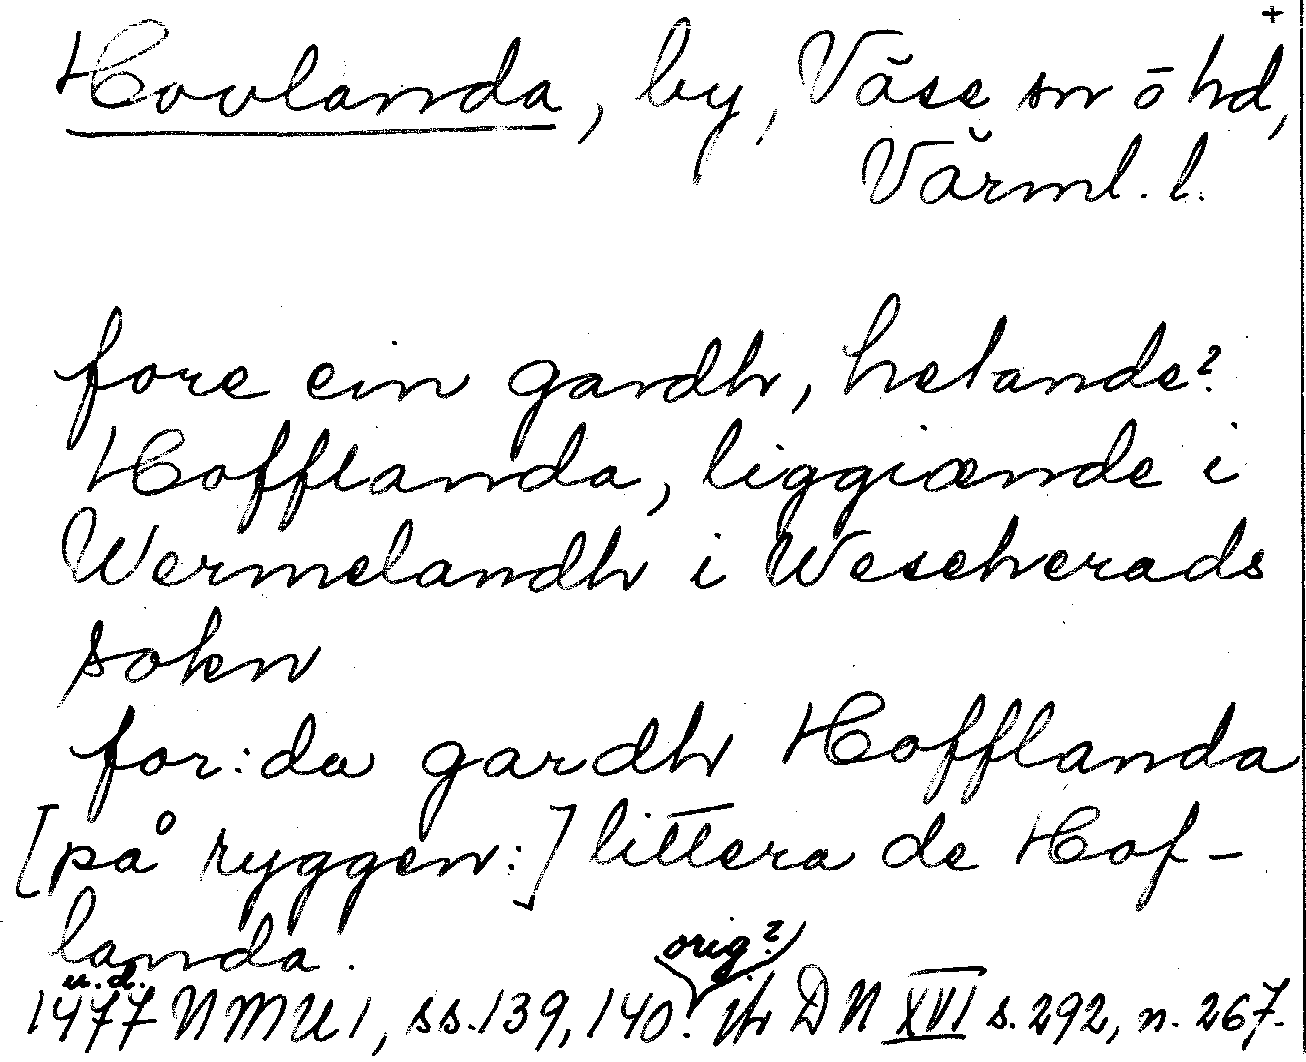 +
Hovlanda, by, Väse sn o hd,
Värml. l.
fore ein gardh, hetande?
Hofflanda, liggiænde i
Wermelandh i Weseherads
sokn
for:da gardh Hofflanda
[på ryggen:] littera de Hof-
landa.
u.d. orig?
1477 NMU 1, ss. 139, 140. jfr DN XVI s. 292, n. 267.